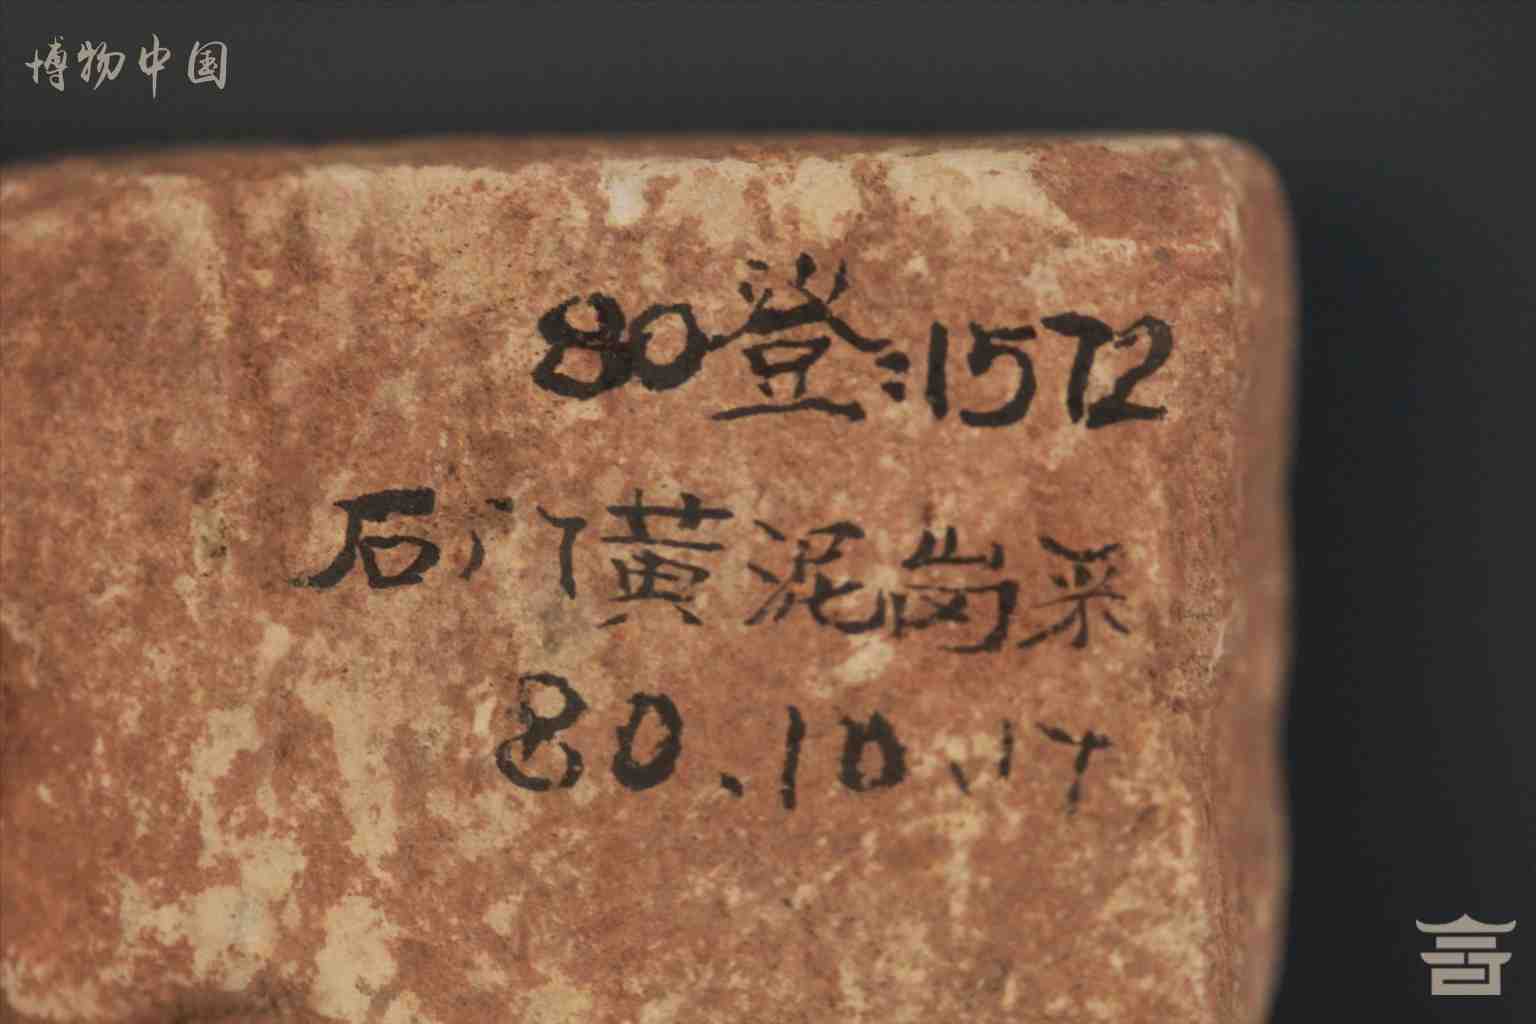 博物中国
80登:1572
石门黄泥岗采
80.10.17